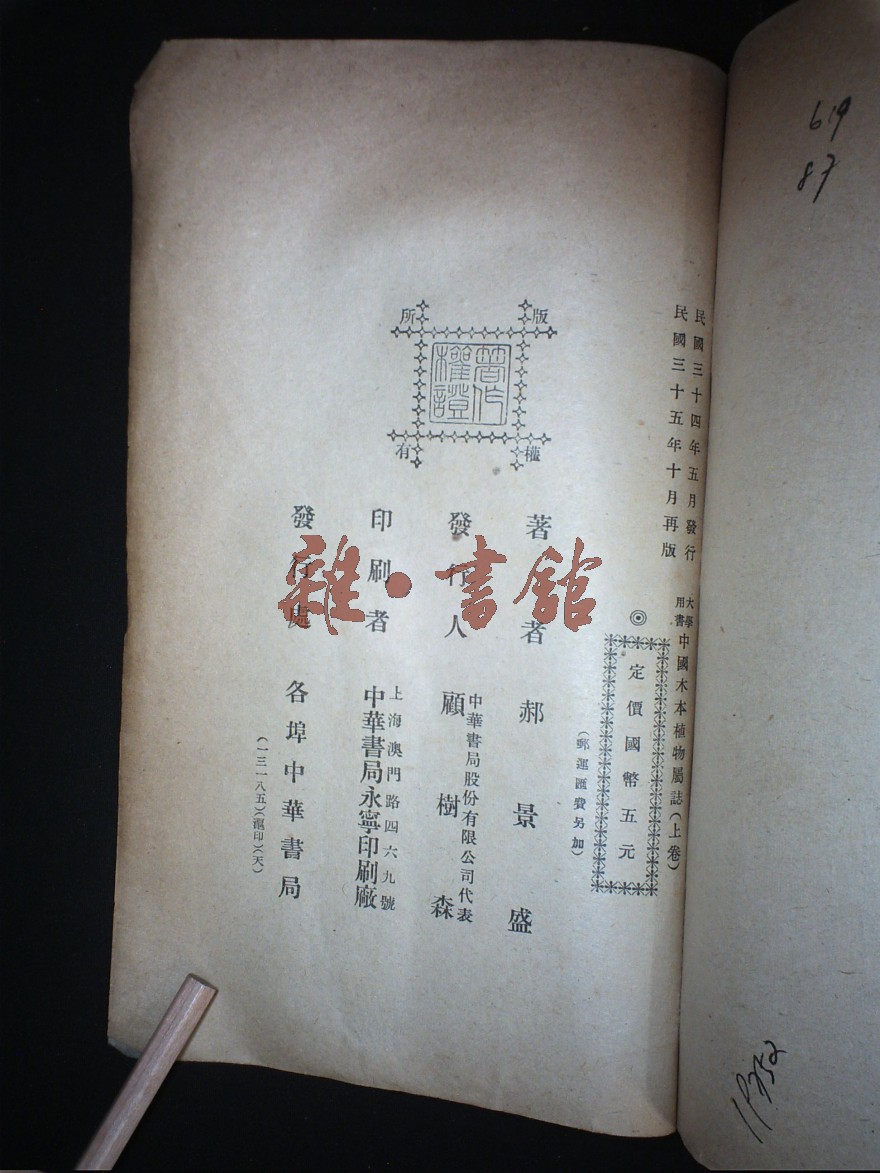 民國三十四年五月發行
民國三十五年十月再版
大學用書 中國木本植物屬誌(上卷)
◎定價國幣五元
(郵運匯費另加)
版權所有
著作權證
著者 郝景盛
發行人 中華書局股份有限公司代表 顧樹森
印刷者 上海澳門路四六九號 中華書局永寧印刷廠
發行處 各埠中華書局
(一三一八五)(滬印)(天)
雜·書館
619
87